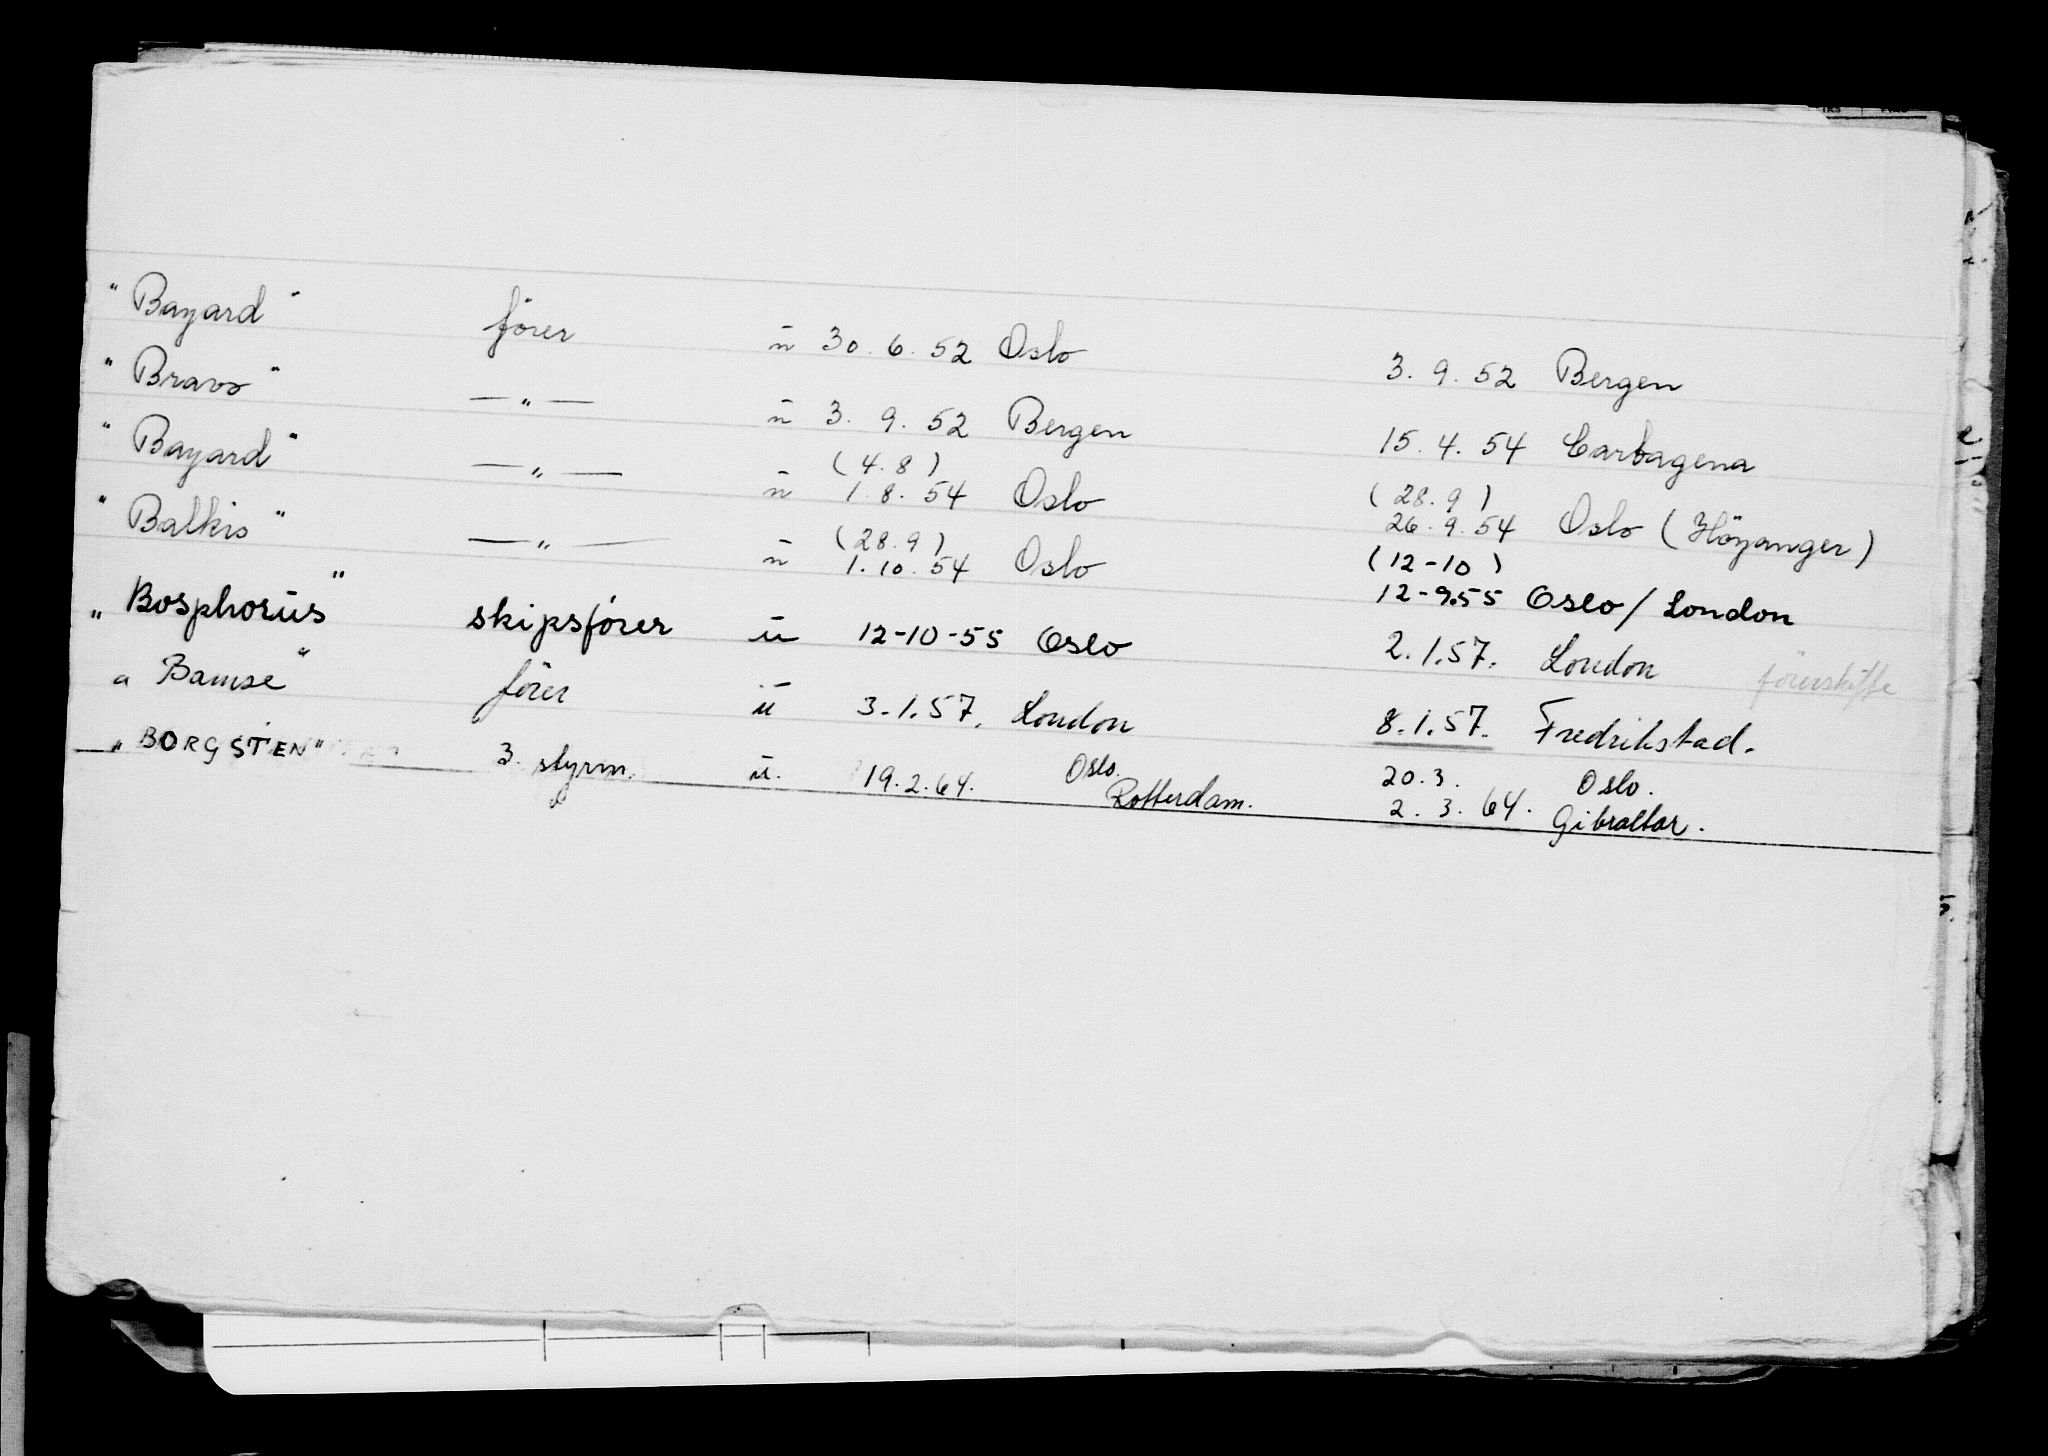 "Bayard" fører u 30.6.52 Oslo 3.9.52 Bergen
"Bravo" —„— u 3.9.52 Bergen 15.4.54 Cartagena
(4.8) (28.9)
"Bayard" —„— u 1.8.54 Oslo 26.9.54 Oslo (Höyanger)
(28.9) (12-10)
"Balkis" —„— u 1.10.54 Oslo 12-9.55 Oslo / London
„Bosphorus" skipsfører u 12-10-55 Oslo 2.1.57. London førerskifte
"Bamse" fører u 3.1.57. London 8.1.57. Fredrikstad.
Oslo. 20.3. Oslo.
—„BORGSTEN" 3. styrm. u. 19.2.64. Rotterdam. 2.3.64. Gibraltar.